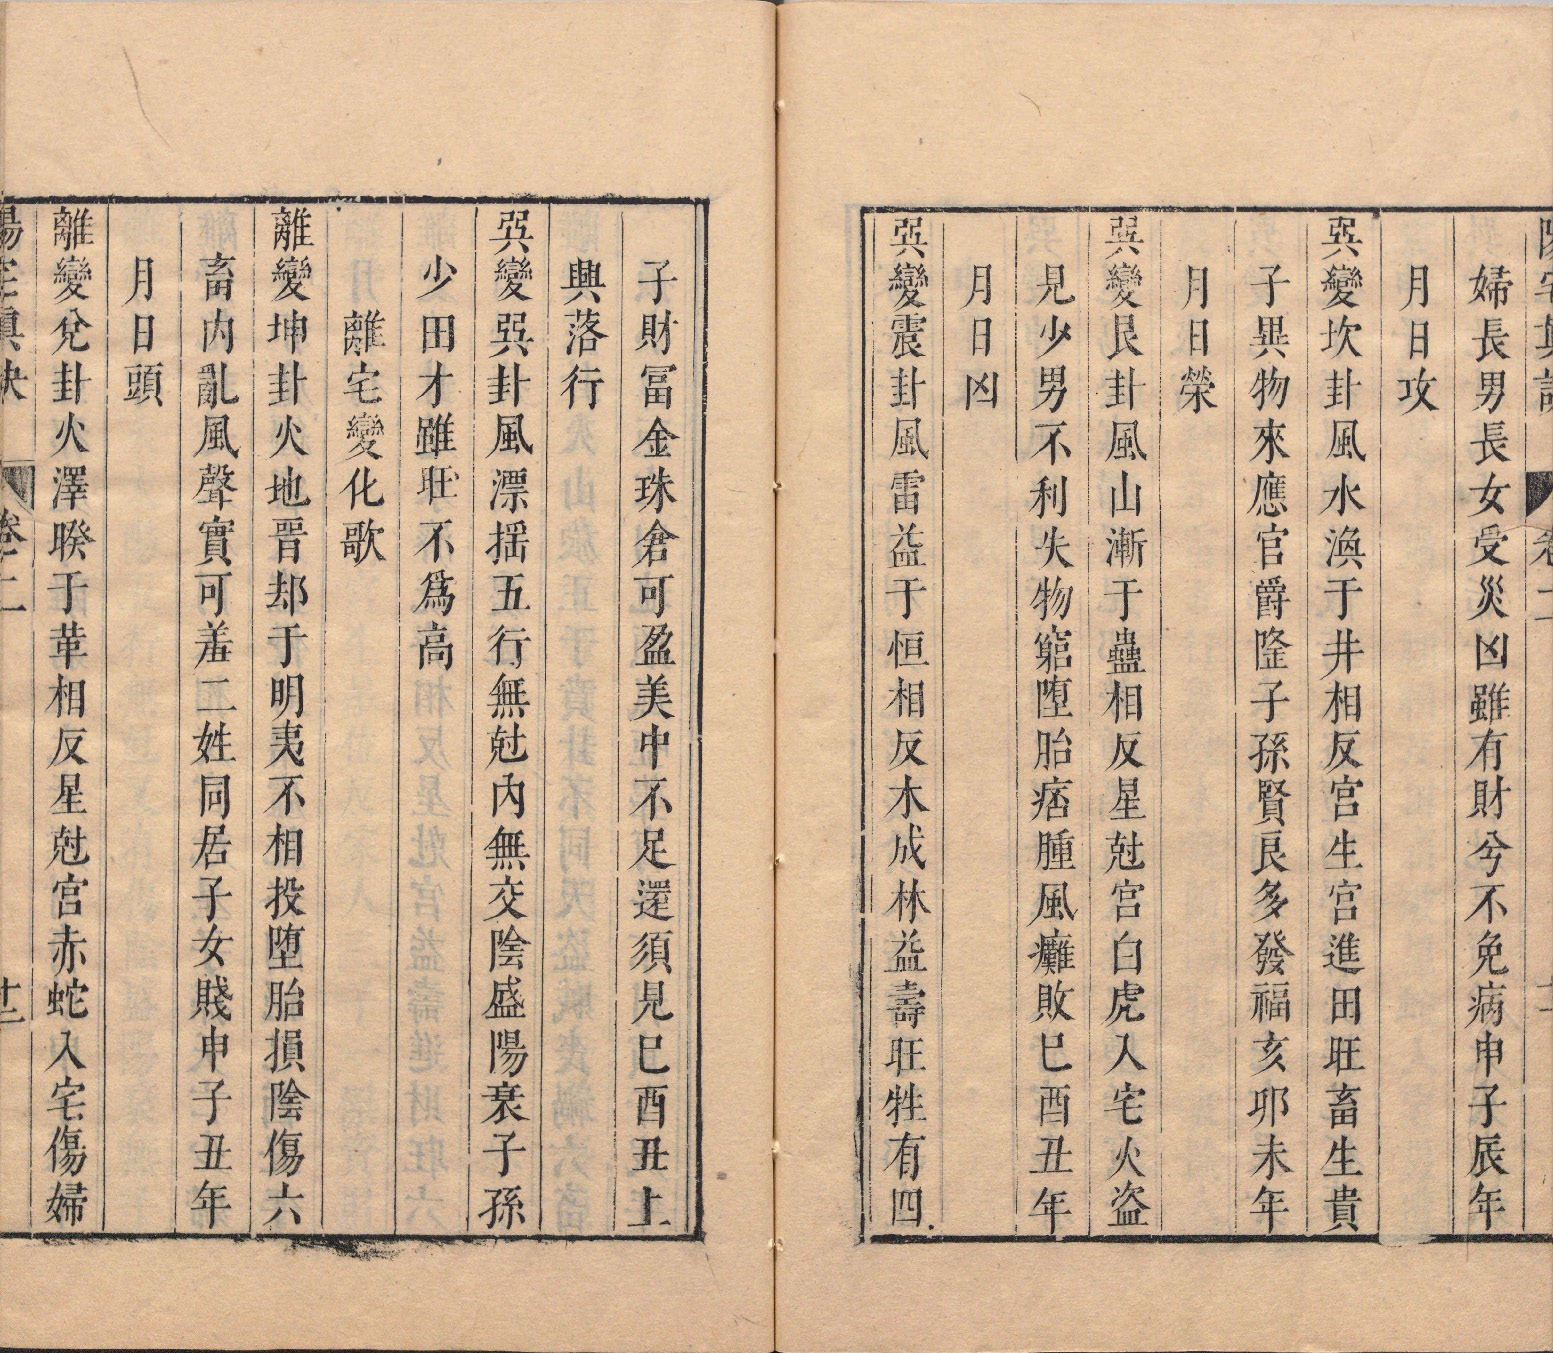 陽宅真訣 卷二
婦長男長女受災凶雖有財兮不免病申子辰年
月日攻
巽變坎卦風水渙于井相反宫生宫進田旺畜生貴
子異物來應官爵陞子孫賢良多發福亥卯未年
月日榮
巽變艮卦風山漸于蠱相反星尅宫白虎入宅火盗
見少男不利失物窮墮胎痞腫風癱敗巳酉丑年
月日凶
巽變震卦風雷益于恒相反木成林益壽旺牲有四
子財冨金珠倉可盈美中不足還須見巳酉丑上
興落行
巽變巽卦風漂揺五行無尅內無交陰盛陽衰子孫
少田才雖旺不為高
離宅變化歌
離變坤卦火地晋却于明夷不相投墮胎損陰傷六
畜内亂風聲實可羞二姓同居子女賤申子丑年
月日頭
離變兌卦火澤睽于革相反星尅宫赤蛇入宅傷婦
陽宅真訣 卷二 廿二